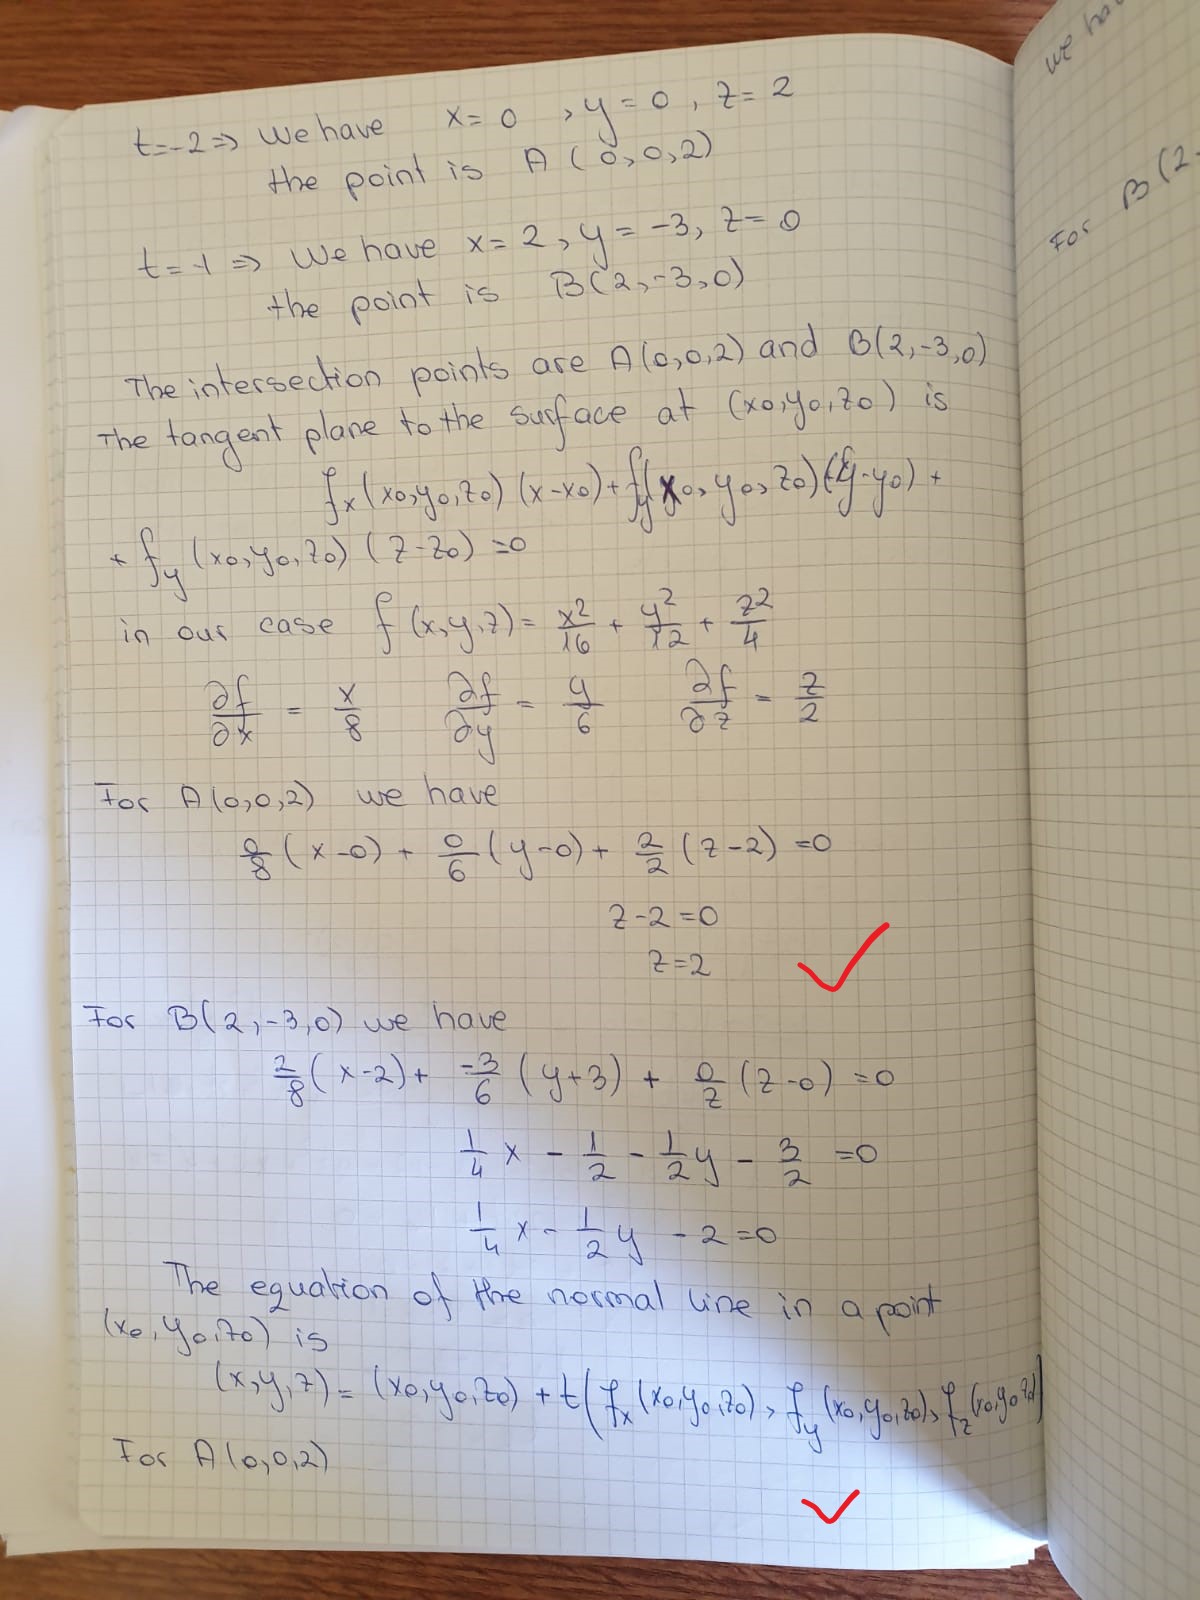 t=-2 => We have x= 0 , y = 0 , z= 2
the point is A (0,0,2)
t= -1 => We have x= 2, y = -3, z= 0
the point is B(2,-3,0)
The intersection points are A(0,0,2) and B(2,-3,0)
The tangent plane to the surface at (x0,y0,z0) is
fx(x0,y0,z0) (x-x0)+ fy(x0,y0,z0)(y-y0) +
+ fy (x0,y0,z0) (z-z0) =0
in our case f (x,y,z)= x²/16 + y²/12 + z²/4
∂f/∂x = x/8 ∂f/∂y = y/6 ∂f/∂z = z/2
For A(0,0,2) we have
0/8 (x-0) + 0/6 (y-0) + 2/2 (z-2) =0
z-2=0
z=2
For B(2,-3,0) we have
2/8 (x-2)+ -3/6 (y+3) + 0/2 (z-0) =0
1/4 x - 1/2 - 1/2 y - 3/2 =0
1/4 x - 1/2 y - 2=0
The equation of the normal line in a point
(x0,y0,z0) is
(x,y,z)= (x0,y0,z0) + t(fx(x0,y0,z0), fy(x0,y0,z0), fz(x0,y0,z0)
For A(0,0,2)
we ha
For B(2,-